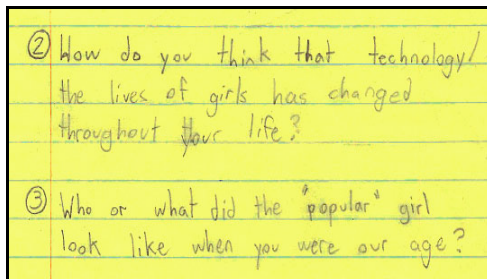 ② How do you think that technology/
the lives of girls has changed
throughout your life?
③ Who or what did the "popular" girl
look like when you were our age?